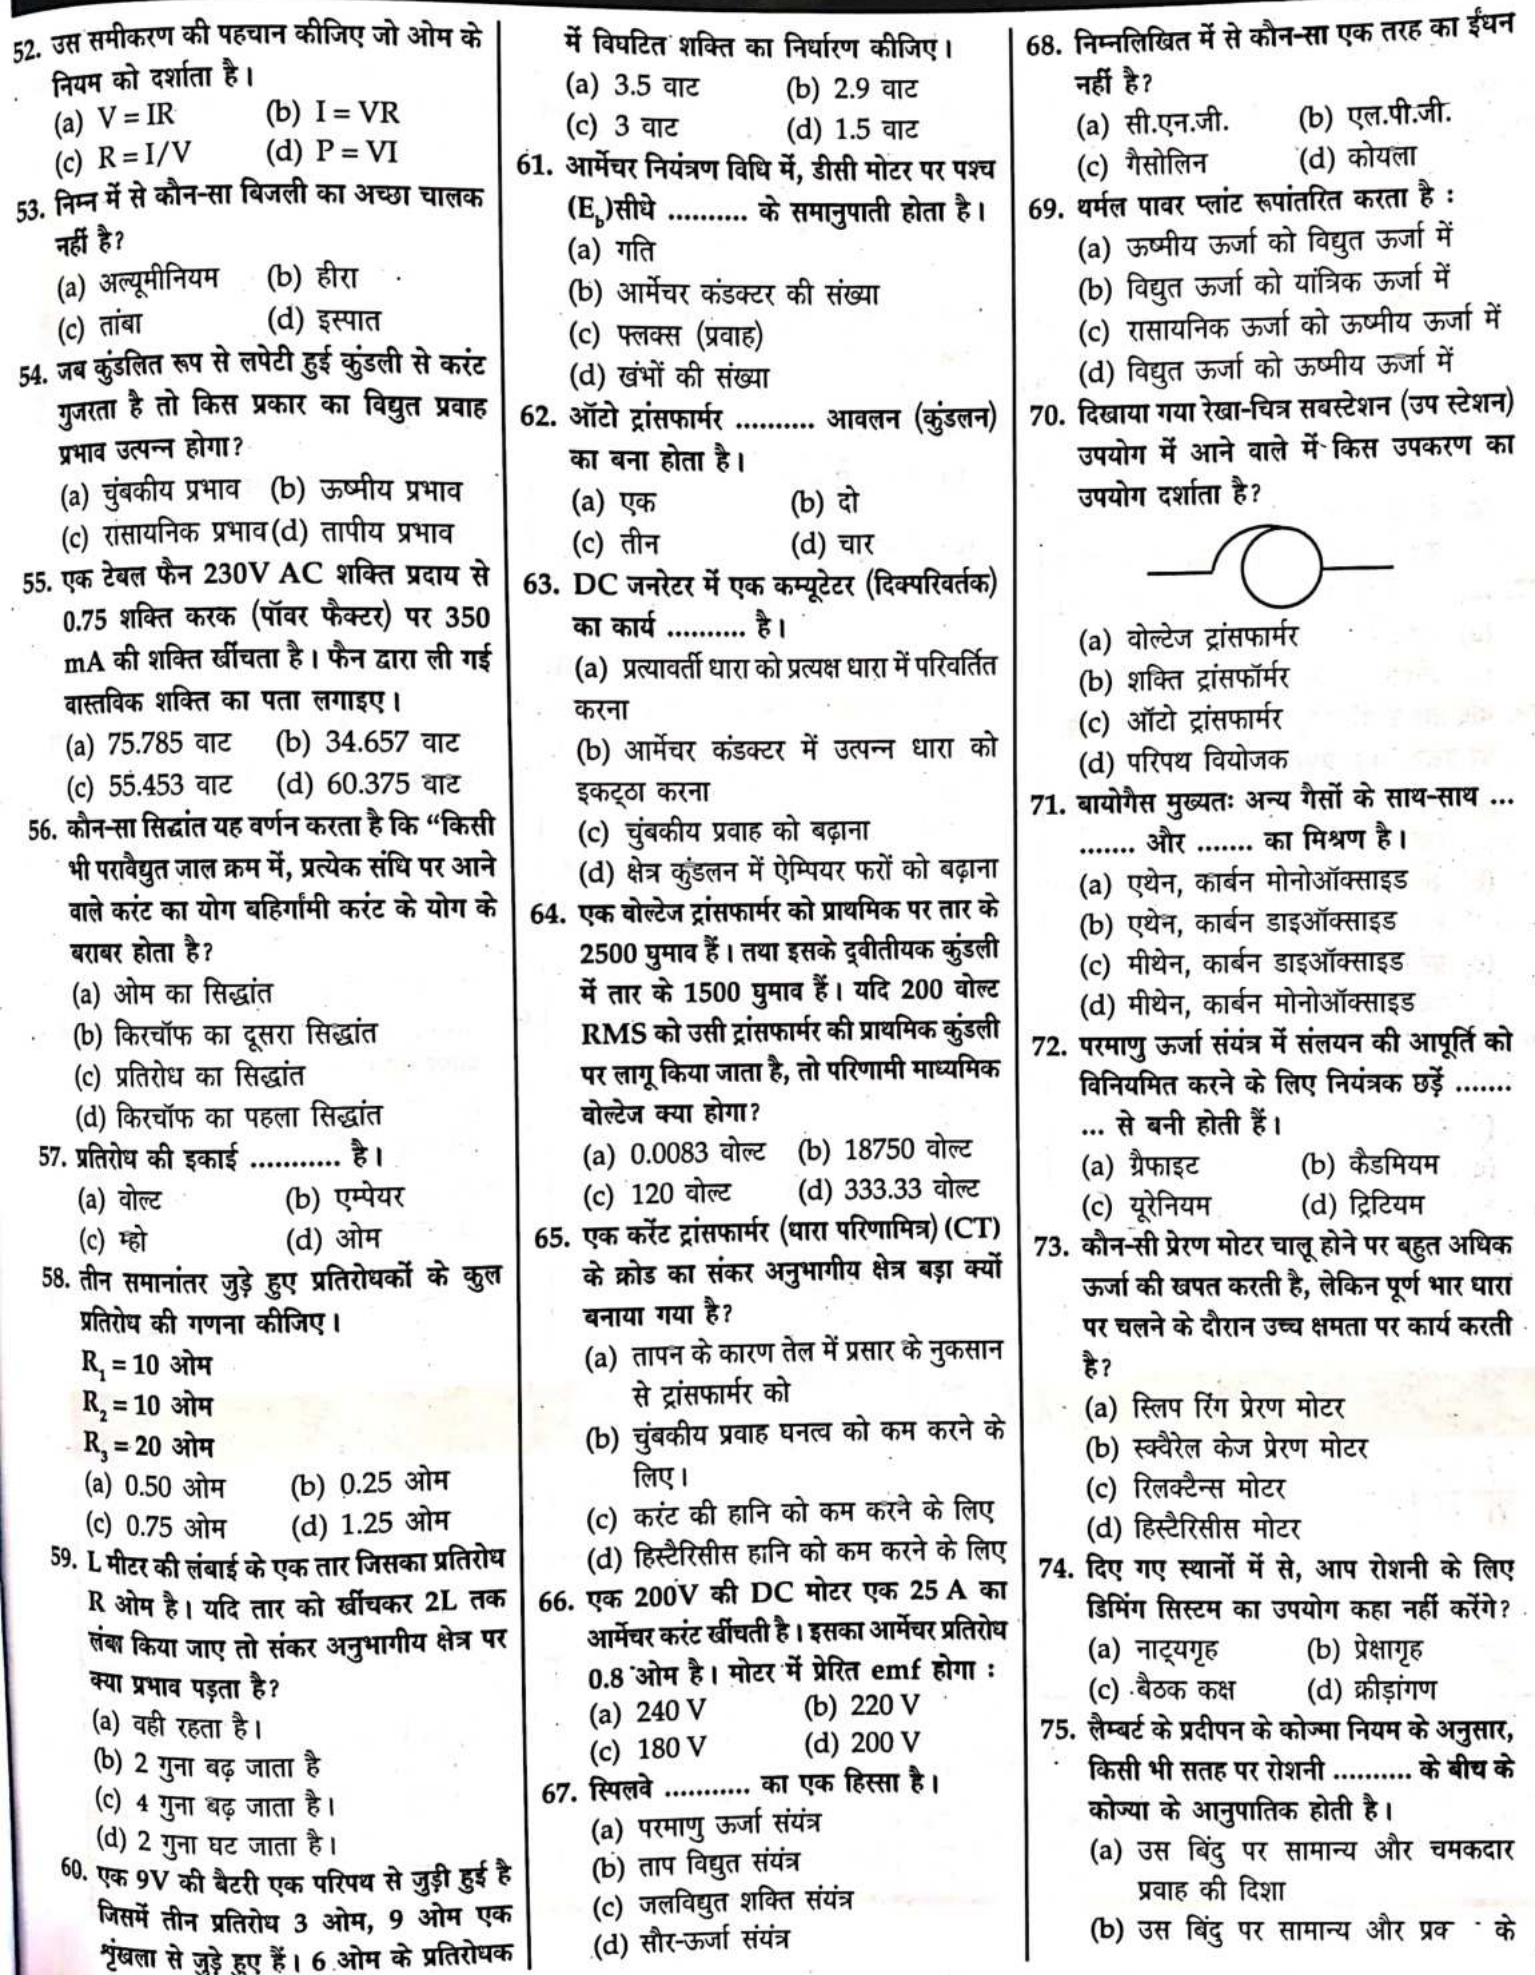 52. उस समीकरण की पहचान कीजिए जो ओम के
नियम को दर्शाता है।
(a) V = IR (b) I = VR
(c) R = I/V (d) P = VI
53. निम्न में से कौन-सा बिजली का अच्छा चालक
नहीं है?
(a) अल्यूमीनियम (b) हीरा
(c) तांबा (d) इस्पात
54. जब कुंडलित रूप से लपेटी हुई कुंडली से करंट
गुजरता है तो किस प्रकार का विद्युत प्रवाह
प्रभाव उत्पन्न होगा?
(a) चुंबकीय प्रभाव (b) ऊष्मीय प्रभाव
(c) रासायनिक प्रभाव (d) तापीय प्रभाव
55. एक टेबल फैन 230V AC शक्ति प्रदाय से
0.75 शक्ति करक (पॉवर फैक्टर) पर 350
mA की शक्ति खींचता है। फैन द्वारा ली गई
वास्तविक शक्ति का पता लगाइए।
(a) 75.785 वाट (b) 34.657 वाट
(c) 55.453 वाट (d) 60.375 वाट
56. कौन-सा सिद्धांत यह वर्णन करता है कि “किसी
भी परावैद्युत जाल क्रम में, प्रत्येक संधि पर आने
वाले करंट का योग बहिर्गामी करंट के योग के
बराबर होता है?
(a) ओम का सिद्धांत
(b) किरचॉफ का दूसरा सिद्धांत
(c) प्रतिरोध का सिद्धांत
(d) किरचॉफ का पहला सिद्धांत
57. प्रतिरोध की इकाई ........... है।
(a) वोल्ट (b) एम्पेयर
(c) म्हो (d) ओम
58. तीन समानांतर जुड़े हुए प्रतिरोधकों के कुल
प्रतिरोध की गणना कीजिए।
R₁ = 10 ओम
R₂ = 10 ओम
R₃ = 20 ओम
(a) 0.50 ओम (b) 0.25 ओम
(c) 0.75 ओम (d) 1.25 ओम
59. L मीटर की लंबाई के एक तार जिसका प्रतिरोध
R ओम है। यदि तार को खींचकर 2L तक
लंबा किया जाए तो संकर अनुभागीय क्षेत्र पर
क्या प्रभाव पड़ता है?
(a) वही रहता है।
(b) 2 गुना बढ़ जाता है
(c) 4 गुना बढ़ जाता है।
(d) 2 गुना घट जाता है।
60. एक 9V की बैटरी एक परिपथ से जुड़ी हुई है
जिसमें तीन प्रतिरोध 3 ओम, 9 ओम एक
शृंखला से जुड़े हुए हैं। 6 ओम के प्रतिरोधक
में विघटित शक्ति का निर्धारण कीजिए।
(a) 3.5 वाट (b) 2.9 वाट
(c) 3 वाट (d) 1.5 वाट
61. आर्मेचर नियंत्रण विधि में, डीसी मोटर पर पश्च
(E_b)सीधे .......... के समानुपाती होता है।
(a) गति
(b) आर्मेचर कंडक्टर की संख्या
(c) फ्लक्स (प्रवाह)
(d) खंभों की संख्या
62. ऑटो ट्रांसफार्मर .......... आवलन (कुंडलन)
का बना होता है।
(a) एक (b) दो
(c) तीन (d) चार
63. DC जनरेटर में एक कम्यूटेटर (दिक्परिवर्तक)
का कार्य .......... है।
(a) प्रत्यावर्ती धारा को प्रत्यक्ष धारा में परिवर्तित
करना
(b) आर्मेचर कंडक्टर में उत्पन्न धारा को
इकट्ठा करना
(c) चुंबकीय प्रवाह को बढ़ाना
(d) क्षेत्र कुंडलन में ऐम्पियर फरों को बढ़ाना
64. एक वोल्टेज ट्रांसफार्मर को प्राथमिक पर तार के
2500 घुमाव हैं। तथा इसके द्वीतीयक कुंडली
में तार के 1500 घुमाव हैं। यदि 200 वोल्ट
RMS को उसी ट्रांसफार्मर की प्राथमिक कुंडली
पर लागू किया जाता है, तो परिणामी माध्यमिक
वोल्टेज क्या होगा?
(a) 0.0083 वोल्ट (b) 18750 वोल्ट
(c) 120 वोल्ट (d) 333.33 वोल्ट
65. एक करेंट ट्रांसफार्मर (धारा परिणामित्र) (CT)
के क्रोड का संकर अनुभागीय क्षेत्र बड़ा क्यों
बनाया गया है?
(a) तापन के कारण तेल में प्रसार के नुकसान
से ट्रांसफार्मर को
(b) चुंबकीय प्रवाह घनत्व को कम करने के
लिए।
(c) करंट की हानि को कम करने के लिए
(d) हिस्टैरिसीस हानि को कम करने के लिए
66. एक 200V की DC मोटर एक 25 A का
आर्मेचर करंट खींचती है। इसका आर्मेचर प्रतिरोध
0.8 ओम है। मोटर में प्रेरित emf होगा :
(a) 240 V (b) 220 V
(c) 180 V (d) 200 V
67. स्पिलवे ........... का एक हिस्सा है।
(a) परमाणु ऊर्जा संयंत्र
(b) ताप विद्युत संयंत्र
(c) जलविद्युत शक्ति संयंत्र
(d) सौर-ऊर्जा संयंत्र
68. निम्नलिखित में से कौन-सा एक तरह का ईंधन
नहीं है?
(a) सी.एन.जी. (b) एल.पी.जी.
(c) गैसोलिन (d) कोयला
69. थर्मल पावर प्लांट रूपांतरित करता है :
(a) ऊष्मीय ऊर्जा को विद्युत ऊर्जा में
(b) विद्युत ऊर्जा को यांत्रिक ऊर्जा में
(c) रासायनिक ऊर्जा को ऊष्मीय ऊर्जा में
(d) विद्युत ऊर्जा को ऊष्मीय ऊर्जा में
70. दिखाया गया रेखा-चित्र सबस्टेशन (उप स्टेशन)
उपयोग में आने वाले में किस उपकरण का
उपयोग दर्शाता है?
(a) वोल्टेज ट्रांसफार्मर
(b) शक्ति ट्रांसफॉर्मर
(c) ऑटो ट्रांसफार्मर
(d) परिपथ वियोजक
71. बायोगैस मुख्यतः अन्य गैसों के साथ-साथ ...
....... और ....... का मिश्रण है।
(a) एथेन, कार्बन मोनोऑक्साइड
(b) एथेन, कार्बन डाइऑक्साइड
(c) मीथेन, कार्बन डाइऑक्साइड
(d) मीथेन, कार्बन मोनोऑक्साइड
72. परमाणु ऊर्जा संयंत्र में संलयन की आपूर्ति को
विनियमित करने के लिए नियंत्रक छड़ें .......
... से बनी होती हैं।
(a) ग्रैफाइट (b) कैडमियम
(c) यूरेनियम (d) ट्रिटियम
73. कौन-सी प्रेरण मोटर चालू होने पर बहुत अधिक
ऊर्जा की खपत करती है, लेकिन पूर्ण भार धारा
पर चलने के दौरान उच्च क्षमता पर कार्य करती
है?
(a) स्लिप रिंग प्रेरण मोटर
(b) स्क्वैरेल केज प्रेरण मोटर
(c) रिलक्टैन्स मोटर
(d) हिस्टैरिसीस मोटर
74. दिए गए स्थानों में से, आप रोशनी के लिए
डिमिंग सिस्टम का उपयोग कहा नहीं करेंगे?
(a) नाट्यगृह (b) प्रेक्षागृह
(c) बैठक कक्ष (d) क्रीड़ांगण
75. लैम्बर्ट के प्रदीपन के कोज्मा नियम के अनुसार,
किसी भी सतह पर रोशनी .......... के बीच के
कोज्या के आनुपातिक होती है।
(a) उस बिंदु पर सामान्य और चमकदार
प्रवाह की दिशा
(b) उस बिंदु पर सामान्य और के